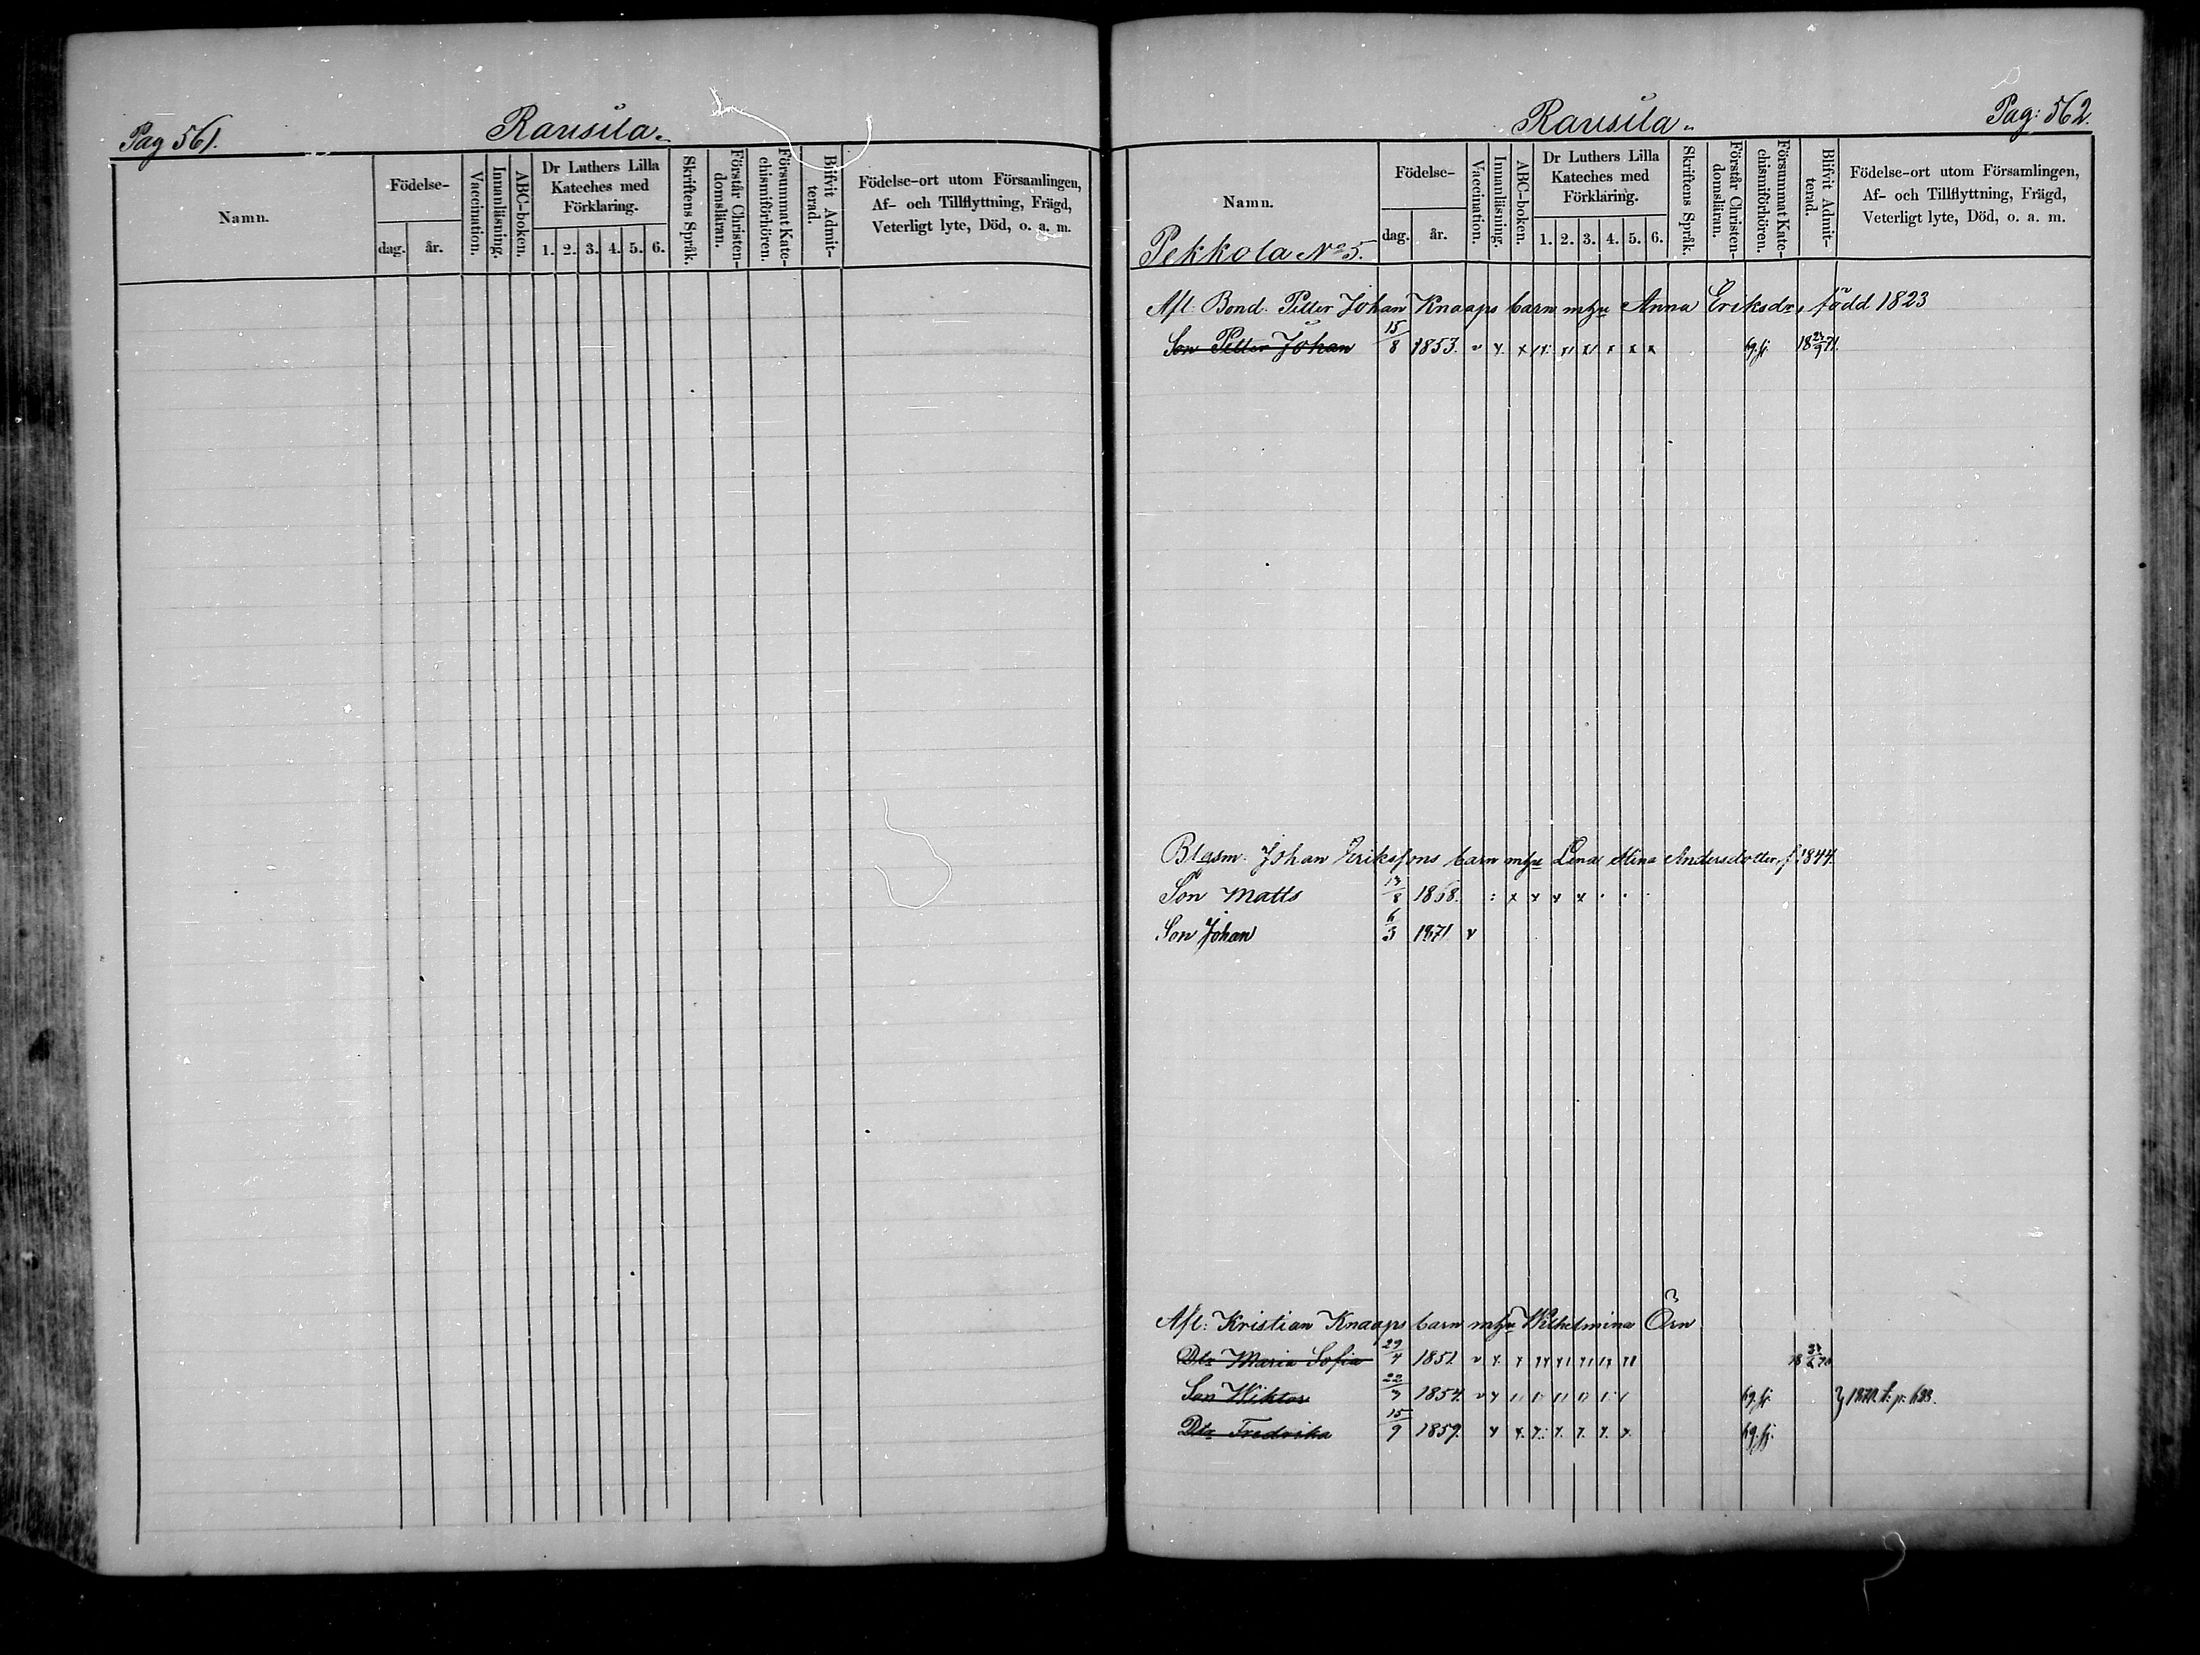 Pag 561.
Ransila.
Namn.
Födelse-
dag.
år.
Vaccination.
Innanläsning.
ABC-boken.
Dr Luthers Lilla
Kateches med
Förklaring.
1. 2. 3. 4. 5. 6.
Skriftens Språk.
Förstår Christen-
domsläran.
Försummat Kate-
chismiförhören.
Blifvit Admit-
terad.
Födelse-ort utom Församlingen,
Af- och Tillflyttning, Frägd,
Veterligt lyte, Död, o. a. m.
Ransila.
Pag: 562.
Namn.
Födelse-
dag.
år.
Vaccination.
Innanläsning.
ABC-boken.
Dr Luthers Lilla
Kateches med
Förklaring.
1. 2. 3. 4. 5. 6.
Skriftens Språk.
Förstår Christen-
domsläran.
Försummat Kate-
chismiförhören.
Blifvit Admit-
terad.
Födelse-ort utom Församlingen,
Af- och Tillflyttning, Frägd,
Veterligt lyte, Död, o. a. m.
Pekkola No 5.
Afl. Bond. Petter Johan Knaaps barn Anna Eriksdr, född 1823
Son Petter Johan 15/8 1853.
Johan Eriksons barn Lena Stina Andersdotter, f. 1844.
Son Matts 13/8 1868.
Son Johan 6/3 1871 v
Afl: Kristian Knaaps barn Wilhelmina Örn
Dtr Maria Sofia 29/4 1851
Son Wiktor 22/3 1854.
Dtr Fredrika 15/9 1859.